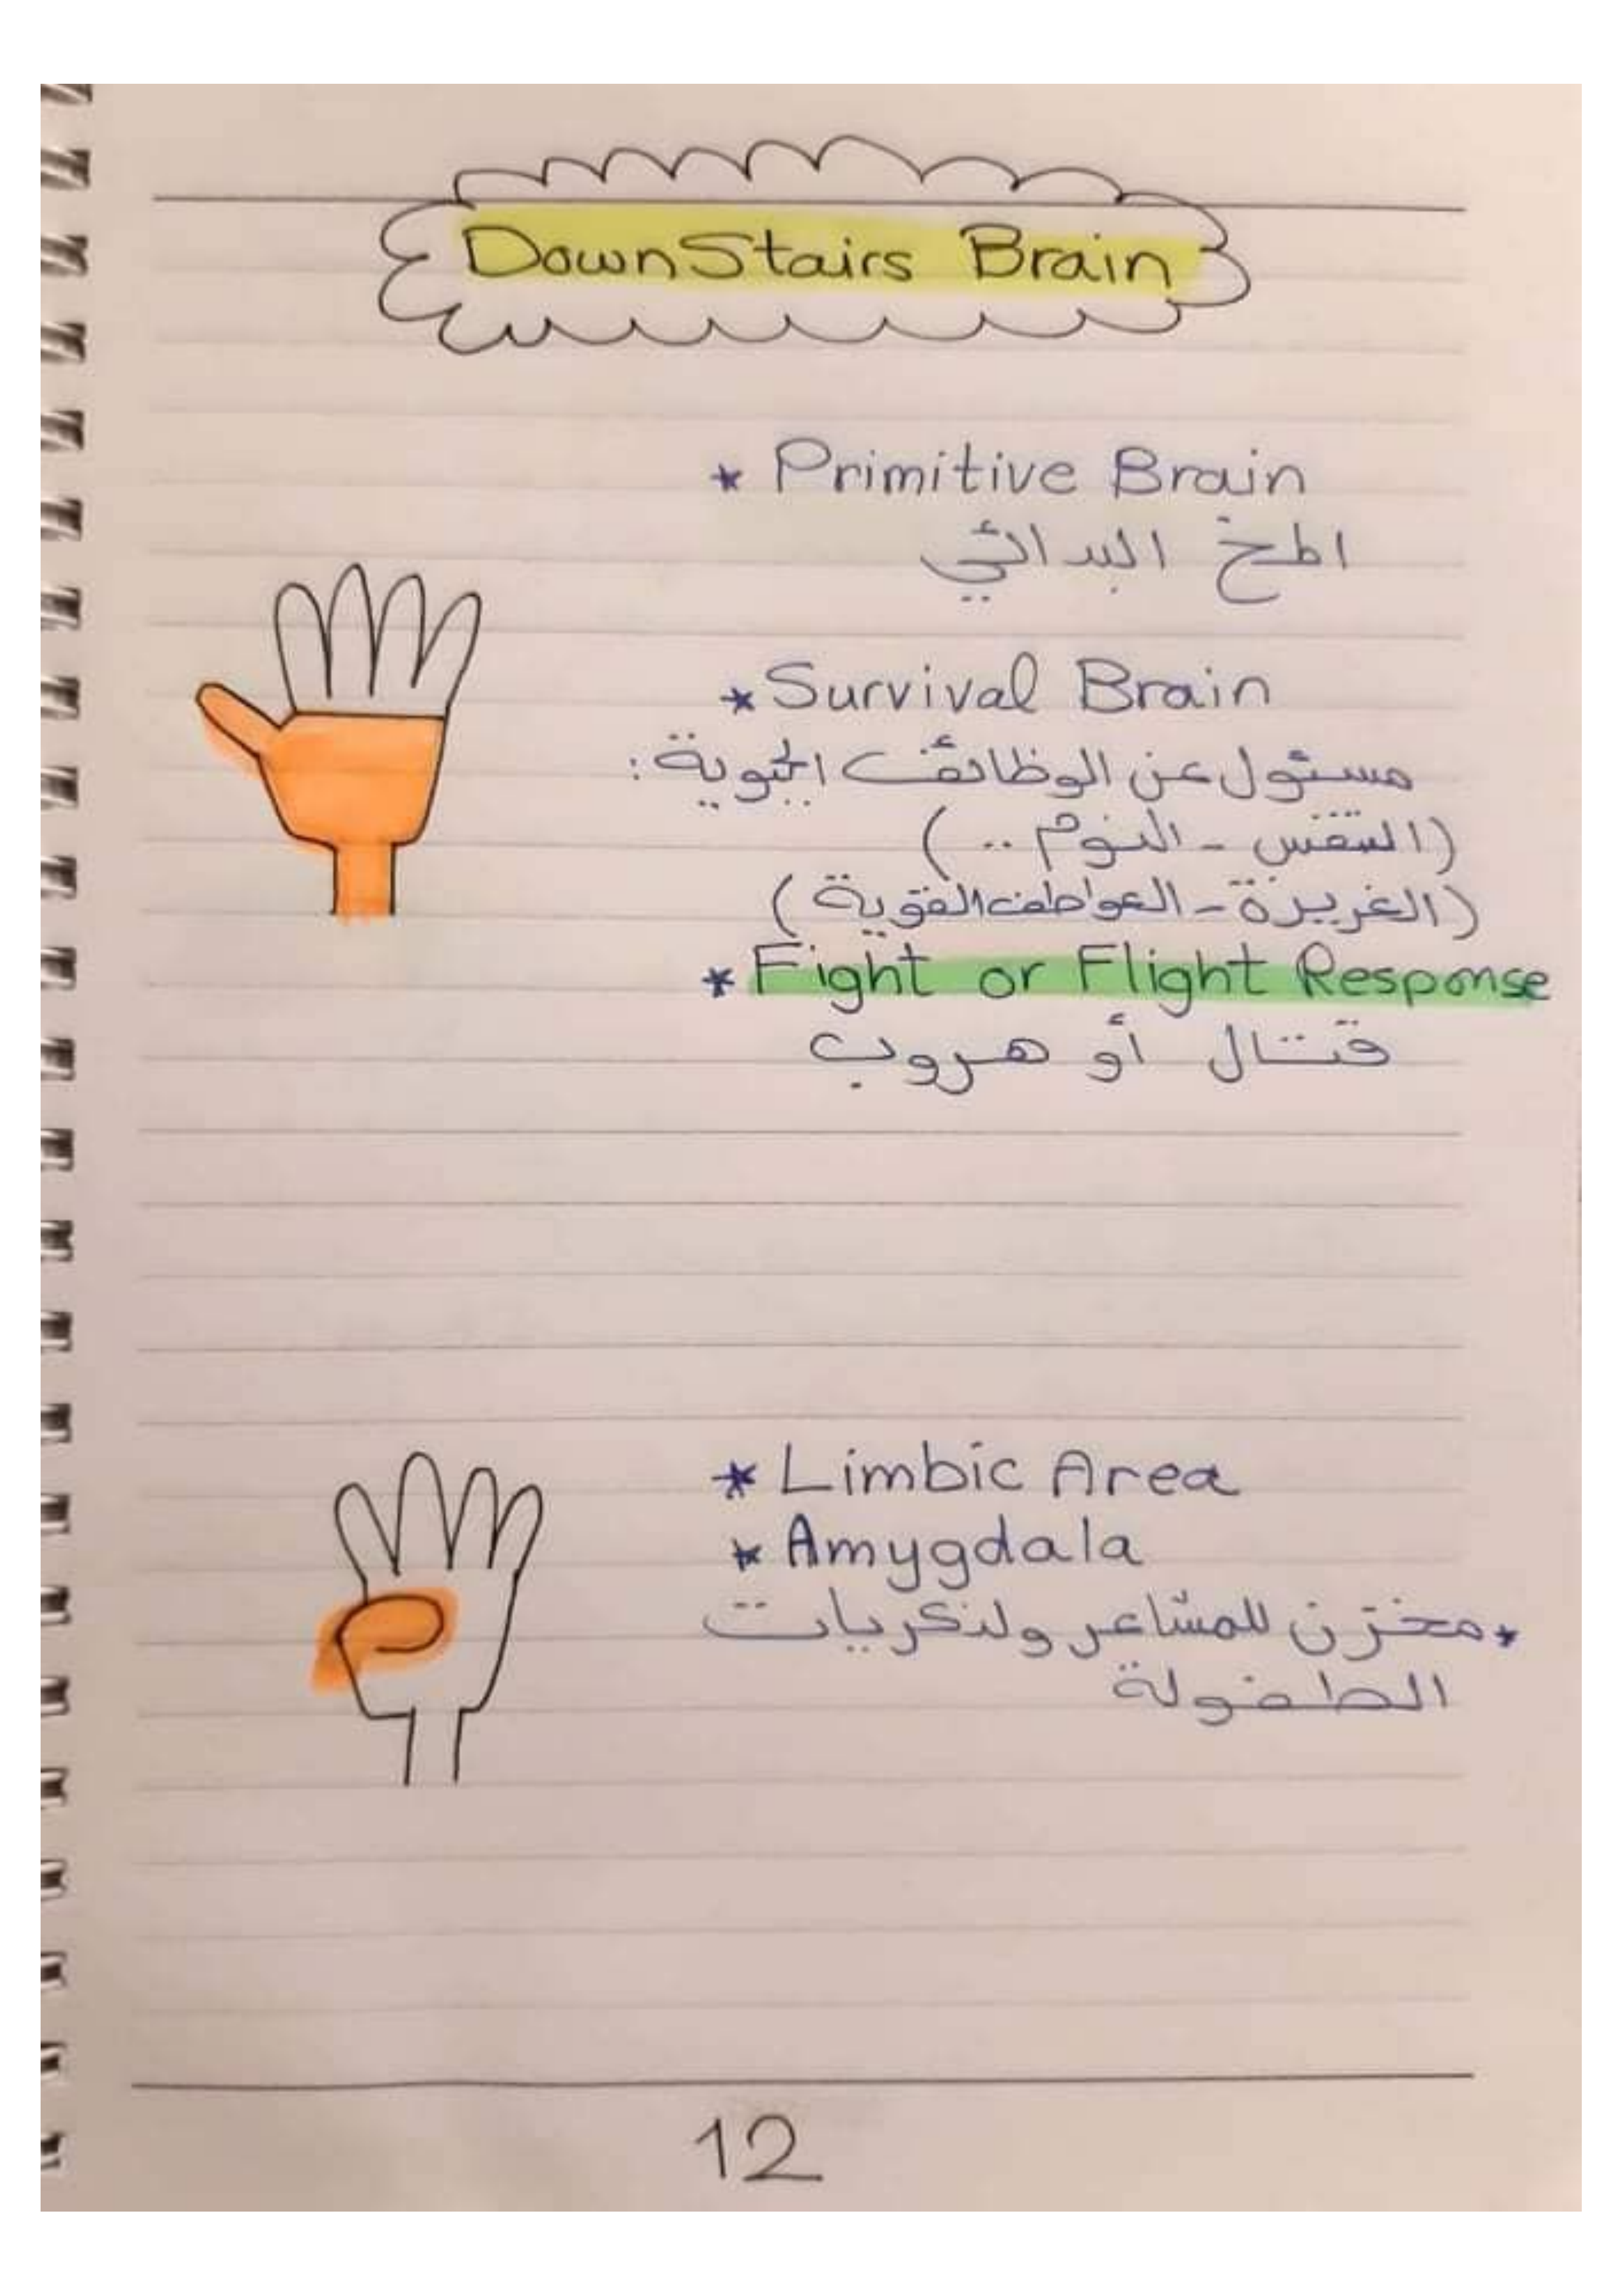 DownStairs Brain
* Primitive Brain
المخ البدائي
* Survival Brain
مسئول عن الوظائف الحيوية:
(التنفس - النوم ..)
(الغريزة - العواطف القوية)
* Fight or Flight Response
قتال أو هروب
* Limbic Area
* Amygdala
* مخزن للمشاعر ولذكريات
الطفولة
12